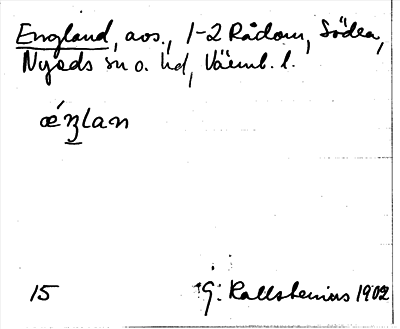 England, aos., 1-2 Rådom, Södra,
Nyeds sn o. hd, Värml. l.
ǽŋlan
15 G. Kallstenius 1902